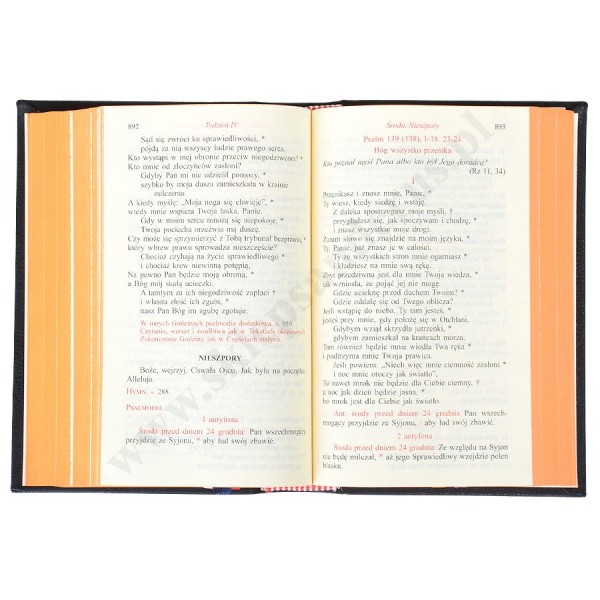 892 Tydzień IV
Sąd się zwróci ku sprawiedliwości, *
pójdą za nią wszyscy ludzie prawego serca.
Kto wystąpi w mej obronie przeciw niegodziwcom? *
Kto mnie od złoczyńców zasłoni?
Gdyby Pan mi nie udzielił pomocy, *
szybko by moja dusza zamieszkała w krainie
milczenia.
A kiedy myślę: „Moja noga się chwieje”, *
wtedy mnie wspiera Twoja łaska, Panie.
Gdy w moim sercu mnożą się niepokoje, *
Twoja pociecha orzeźwia mą duszę.
Czy może się sprzymierzyć z Tobą trybunał bezprawia, *
który wbrew prawu sprowadza nieszczęście?
Chociaż czyhają na życie sprawiedliwego *
i chociaż krew niewinną potępią,
Na pewno Pan będzie moją obroną, *
a Bóg mój skałą ucieczki.
A tamtym za ich niegodziwość zapłaci †
i własna złość ich zgubi, *
nasz Pan Bóg im zgubę zgotuje.
W innych Godzinach psalmodia dodatkowa, s. 959.
Czytanie, werset i modlitwa jak w Tekstach okresowych.
Zakończenie Godziny jak w Częściach stałych.
NIESZPORY
Boże, wejrzyj. Chwała Ojcu. Jak była na początku.
Alleluja.
HYMN, s. 288.
PSALMODIA
1 antyfona
Środa przed dniem 24 grudnia: Pan wszechmogący
przyjdzie ze Syjonu, * aby lud swój zbawić.
Środa, Nieszpory 893
Psalm 139 (138), 1-18. 23-24
Bóg wszystko przenika
Kto poznał myśl Pana albo kto był Jego doradcą?
(Rz 11, 34)
I
Przenikasz i znasz mnie, Panie, *
Ty wiesz, kiedy siedzę i wstaję.
Z daleka spostrzegasz moje myśli, †
przyglądasz się, jak spoczywam i chodzę, *
i znasz wszystkie moje drogi.
Zanim słowo się znajdzie na moim języku, *
Ty, Panie, już znasz je w całości.
Ty ze wszystkich stron mnie ogarniasz *
i kładziesz na mnie swą rękę.
Zbyt przedziwna jest dla mnie Twoja wiedza, *
tak wzniosła, że pojąć jej nie mogę.
Gdzie ucieknę przed duchem Twoim? *
Gdzie oddalę się od Twego oblicza?
Jeśli wstąpię do nieba, Ty tam jesteś, *
jesteś przy mnie, gdy położę się w Otchłani.
Gdybym wziął skrzydła jutrzenki, *
gdybym zamieszkał na krańcach morza,
Tam również będzie mnie wiodła Twa ręka *
i podtrzyma mnie Twoja prawica.
Jeśli powiem: „Niech więc mnie ciemność zasłoni *
i noc mnie otoczy jak światło”,
To nawet mrok nie będzie dla Ciebie ciemny, †
a noc jak dzień będzie jasna, *
bo mrok jest dla Ciebie jak światło.
Ant. środy przed dniem 24 grudnia Pan wszech-
mogący przyjdzie ze Syjonu, * aby lud swój zbawić.
2 antyfona
Środa przed dniem 24 grudnia: Ze względu na Syjon
nie będę milczał, * aż jego Sprawiedliwy wzejdzie pełen
blasku.